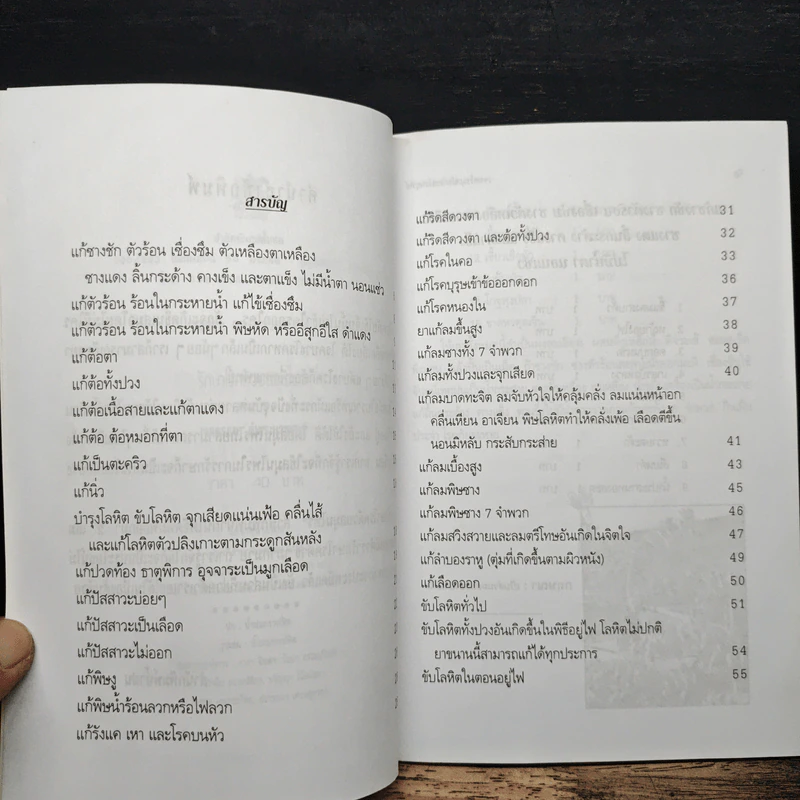 สารบัญ
แก้ซางชัก ตัวร้อน เชื่องซึม ตัวเหลืองตาเหลือง
ซางแดง ลิ้นกระด้าง คางเข็ง และตาแข็ง ไม่มีน้ำตา นอนแซ่ว
แก้ตัวร้อน ร้อนในกระหายน้ำ แก้ไข้เชื่องซึม
แก้ตัวร้อน ร้อนในกระหายน้ำ พิษหัด หรืออีสุกอีใส ดำแดง
แก้ต้อตา
แก้ต้อทั้งปวง
แก้ต้อเนื้อสายและแก้ตาแดง
แก้ต้อ ต้อหมอกที่ตา
แก้เป็นตะคริว
แก้นิ่ว
บำรุงโลหิต ขับโลหิต จุกเสียดแน่นเฟ้อ คลื่นไส้
และแก้โลหิตตัวปลิงเกาะตามกระดูกสันหลัง
แก้ปวดท้อง ธาตุพิการ อุจจาระเป็นมูกเลือด
แก้ปัสสาวะบ่อยๆ
แก้ปัสสาวะเป็นเลือด
แก้ปัสสาวะไม่ออก
แก้พิษงู
แก้พิษน้ำร้อนลวกหรือไฟลวก
แก้รังแค เหา และโรคบนหัว
แก้ริดสีดวงตา 31
แก้ริดสีดวงตา และต้อทั้งปวง 32
แก้โรคในคอ 33
แก้โรคบุรุษเข้าข้อออกดอก 36
แก้โรคหนองใน 37
ยาแก้ลมขึ้นสูง 38
แก้ลมซางทั้ง 7 จำพวก 39
แก้ลมทั้งปวงและจุกเสียด 40
แก้ลมบาดทะจิต ลมจับหัวใจให้คลุ้มคลั่ง ลมแน่นหน้าอก
คลื่นเหียน อาเจียน พิษโลหิตทำให้คลั่งเพ้อ เลือดตีขึ้น
นอนมิหลับ กระสับกระส่าย 41
แก้ลมเบื้องสูง 43
แก้ลมพิษซาง 45
แก้ลมพิษซาง 7 จำพวก 46
แก้ลมสวิงสวายและลมตรีโทษอันเกิดในจิตใจ 47
แก้ลำบองราหู (ตุ่มที่เกิดขึ้นตามผิวหนัง) 49
แก้เลือดออก 50
ขับโลหิตทั่วไป 51
ขับโลหิตทั้งปวงอันเกิดขึ้นในพิธีอยู่ไฟ โลหิตไม่ปกติ
ยาขนานนี้สามารถแก้ได้ทุกประการ 54
ขับโลหิตในตอนอยู่ไฟ 55